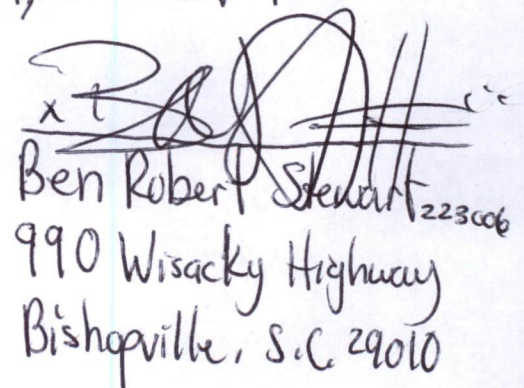 x
Ben Robert Stewart 223006
990 Wisacky Highway
Bishopville, S.C. 29010